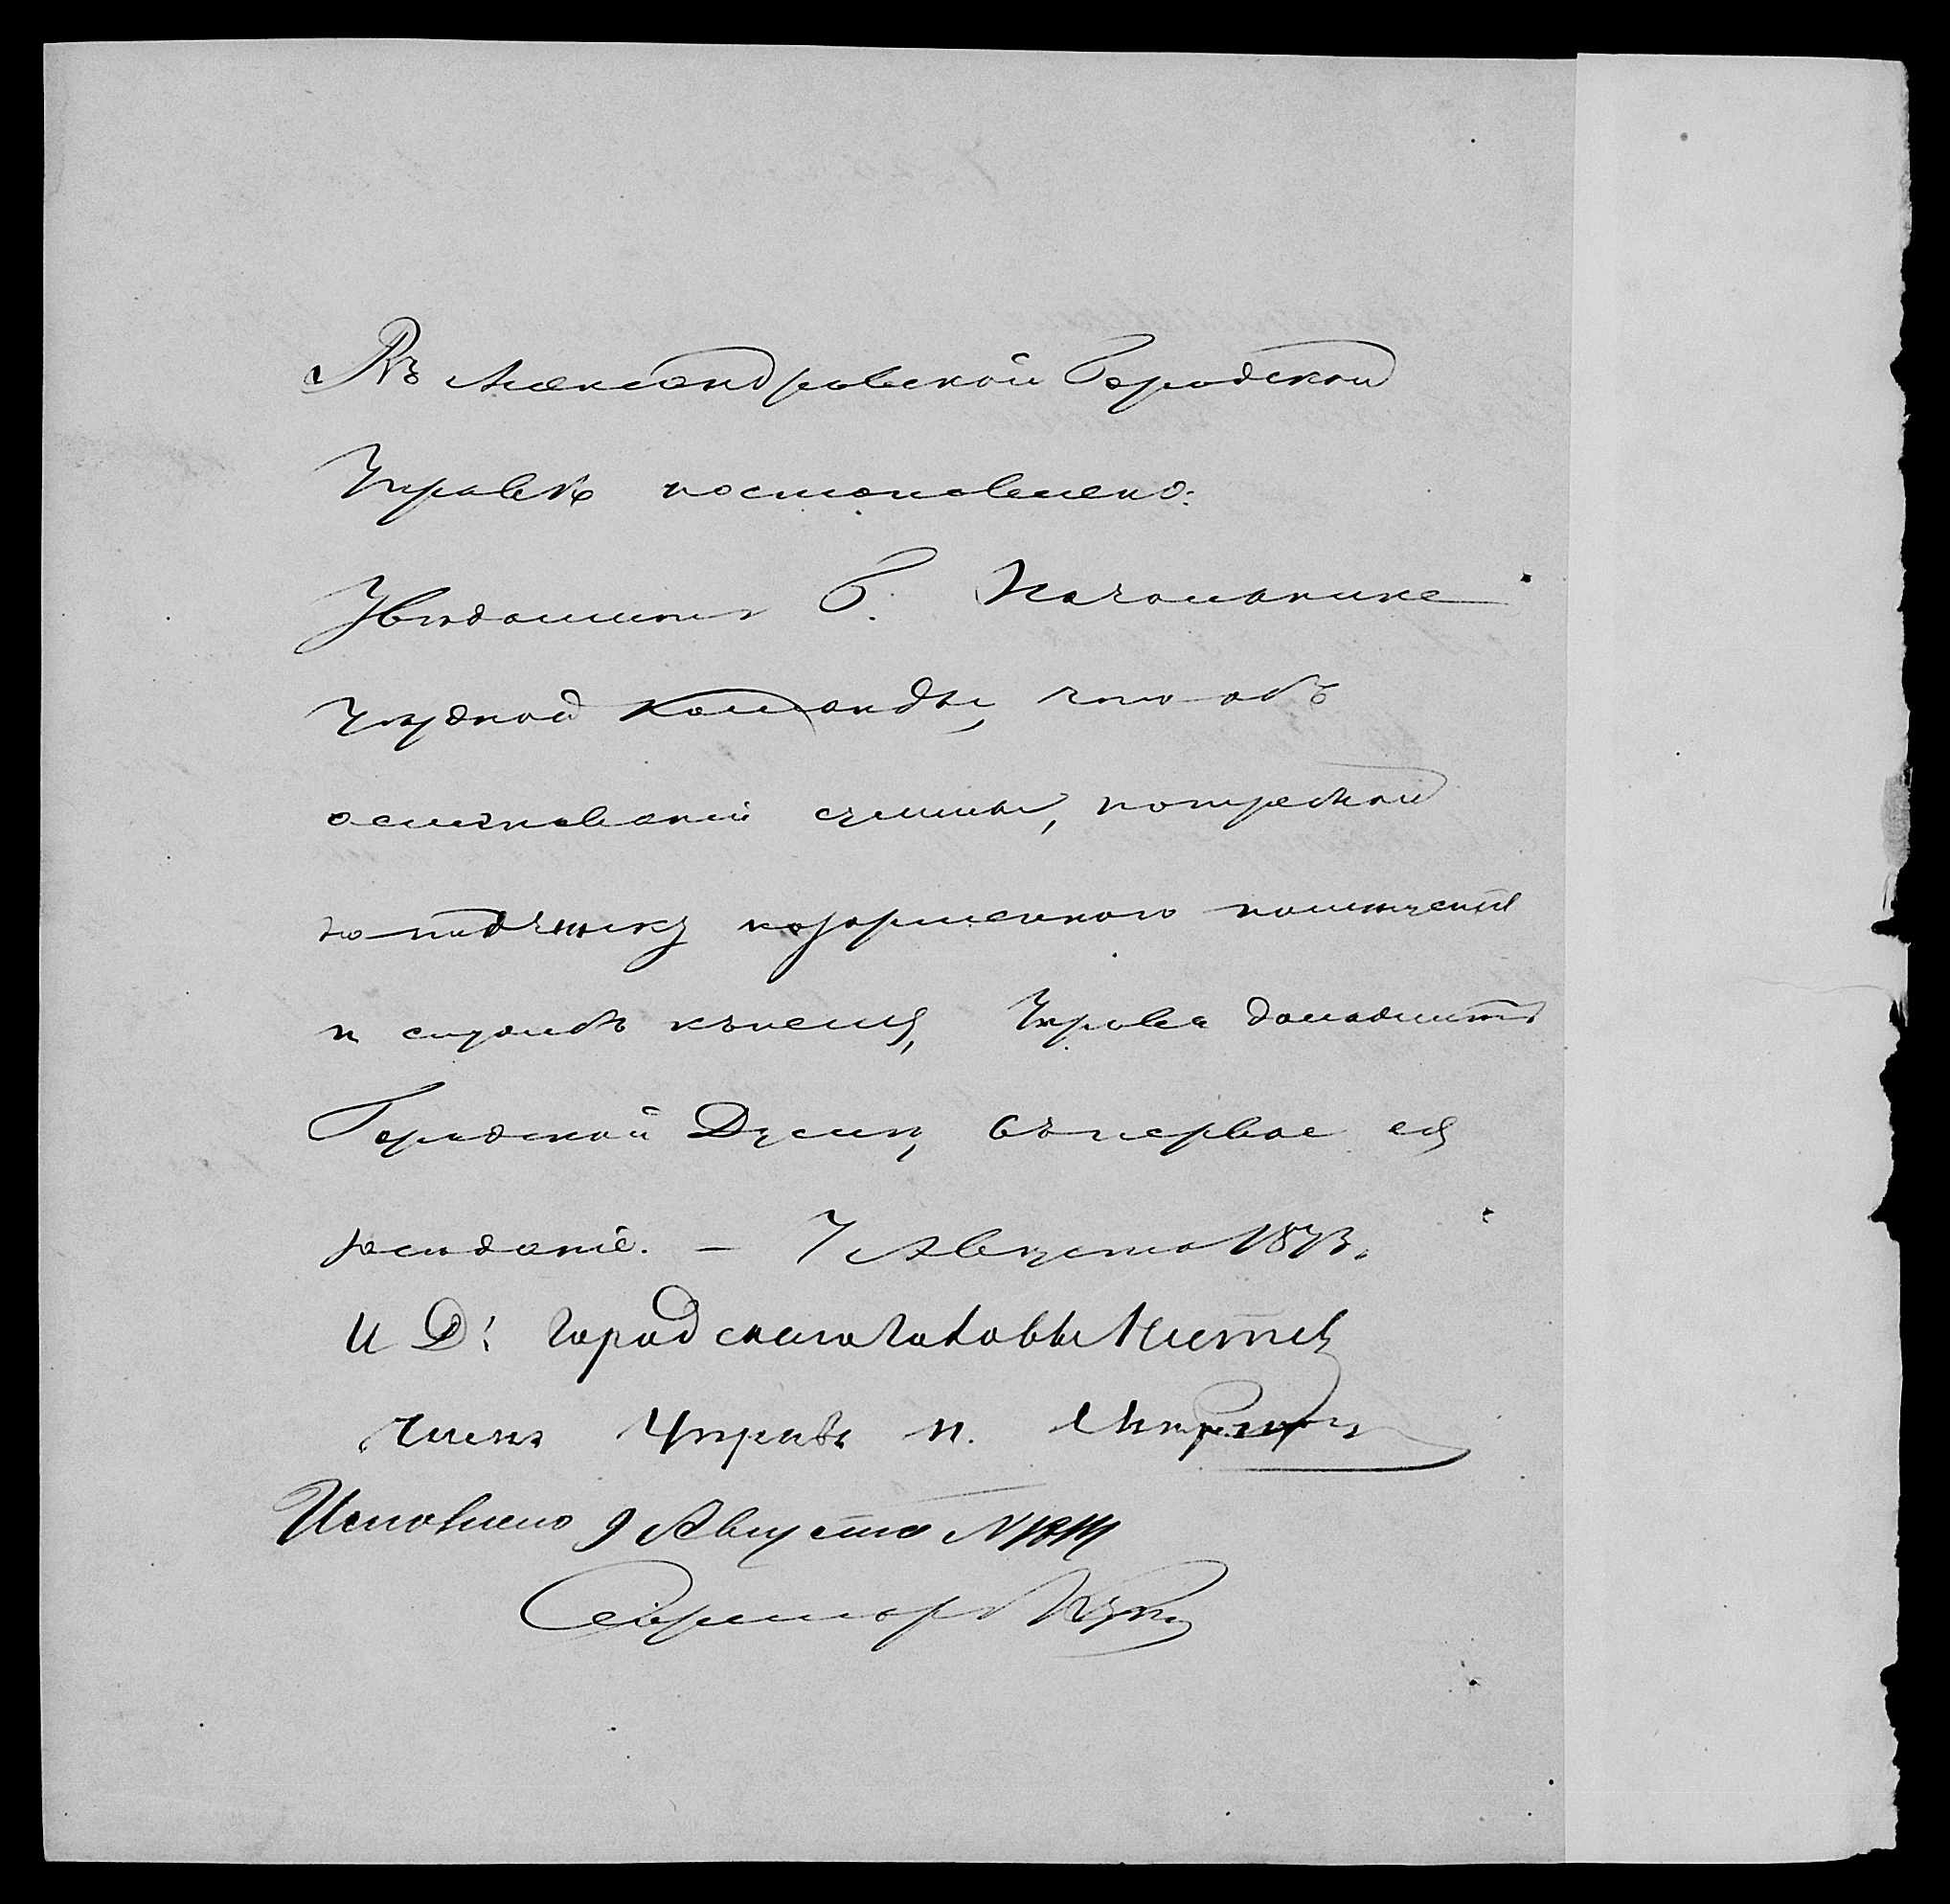 Въ Александровской Городской
Управѣ постановлено:
Увѣдомить Г. Начальника
Уѣздной Команды, что объ
ассигнованіи суммы, потребной
на починку казарменнаго помѣщенія
и службъ къ нему, Управа доложитъ
Городской Думѣ, въ первое ея
засѣданіе. — 7 Августа 1873.
И Д. городскаго головы
Членъ Управы П.
Исполнено 9 Августа №
Секретарь